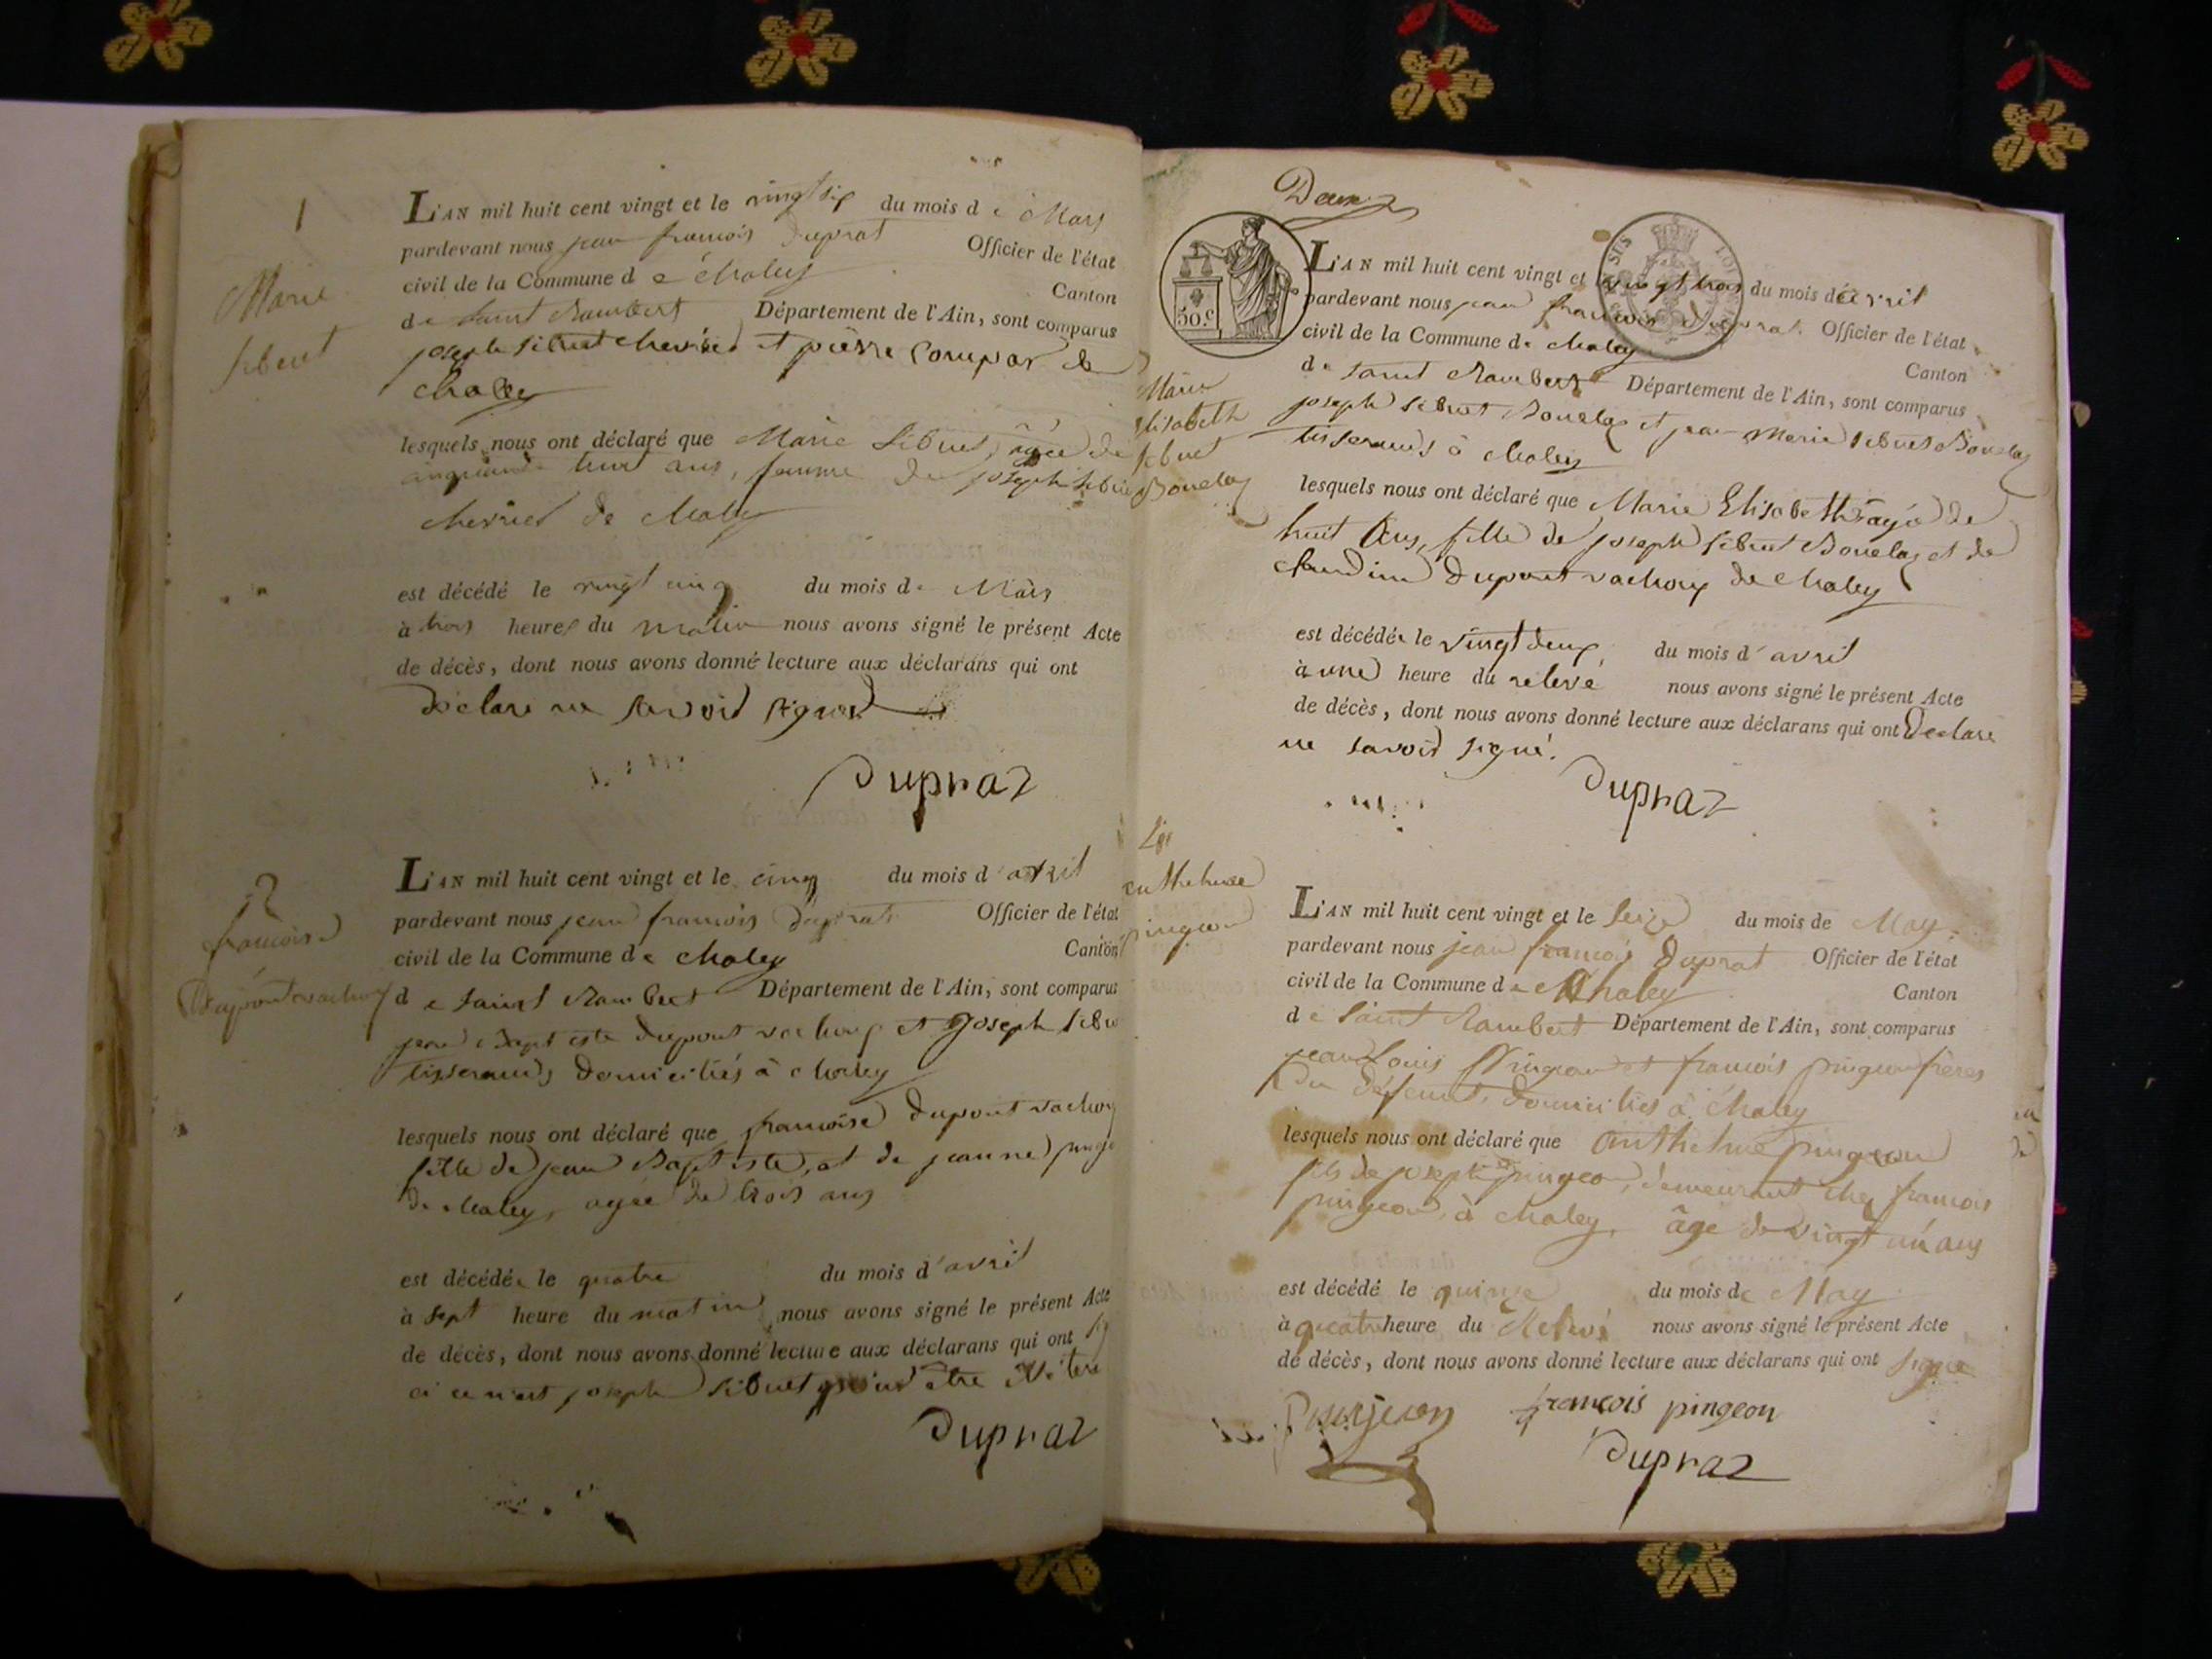 1
Marie
Sibuet
L'AN mil huit cent vingt et le vingt six du mois de Mars
pardevant nous jean francois Duprat Officier de l'état
civil de la Commune de Chaley Canton
de Saint Rambert Département de l'Ain, sont comparus
joseph Sibuet et pierre de
Chaley
lesquels nous ont déclaré que Marie Sibuet, âgée de
cinquante huit ans, femme de joseph Sibuet
de Chaley
est décédé le vingt cinq du mois de Mars
à trois heures du matin nous avons signé le présent Acte
de décès, dont nous avons donné lecture aux déclarans qui ont
déclare ne savoir signer
Dupraz
2
francoise
Dupont vachoy
L'AN mil huit cent vingt et le cinq du mois d'avril
pardevant nous jean francois Duprat Officier de l'état
civil de la Commune de Chaley Canton
de Saint Rambert Département de l'Ain, sont comparus
jean Baptiste dupont vachoy et Joseph Sibu
tisserands domiciliés à Chaley
lesquels nous ont déclaré que francoise dupont vachoy
fille de jean Baptiste, et de jeanne pinge
de Chaley, agée de trois ans
est décédée le quatre du mois d'avril
à sept heure du matin nous avons signé le présent Acte
de décès, dont nous avons donné lecture aux déclarans qui ont
ci ce n'est joseph Sibuet être
Dupraz
Deux
50.c
Marie
Elisabeth
Sibuet
Bouelaz
L'AN mil huit cent vingt et le vingt trois du mois d'avril
pardevant nous jean francois Duprat Officier de l'état
civil de la Commune de Chaley Canton
de Saint Rambert Département de l'Ain, sont comparus
joseph Sibuet Bouelaz et jean Marie Sibuet Bouelaz
tisserands à Chaley
lesquels nous ont déclaré que Marie Elisabeth agée de
huit ans, fille de joseph Sibuet Bouelaz et de
claudine Dupont vachoy de Chaley
est décédée le vingt deux du mois d'avril
à une heure du relevé nous avons signé le présent Acte
de décès, dont nous avons donné lecture aux déclarans qui ont Declare
ne savoir signé.
Dupraz
anthelme
pingeon
L'AN mil huit cent vingt et le seize du mois de May
pardevant nous jean francois Duprat Officier de l'état
civil de la Commune de Chaley Canton
de Saint Rambert Département de l'Ain, sont comparus
jean Louis Pingeon et francois pingeon frères
Du défunt, domiciliés à Chaley
lesquels nous ont déclaré que anthelme pingeon
fils de joseph pingeon, demeurant chez francois
pingeon, à Chaley, âgé de vingt un ans
est décédé le quinze du mois de May
à quatre heure du Relevé nous avons signé le présent Acte
de décès, dont nous avons donné lecture aux déclarans qui ont signé
francois pingeon
Dupraz